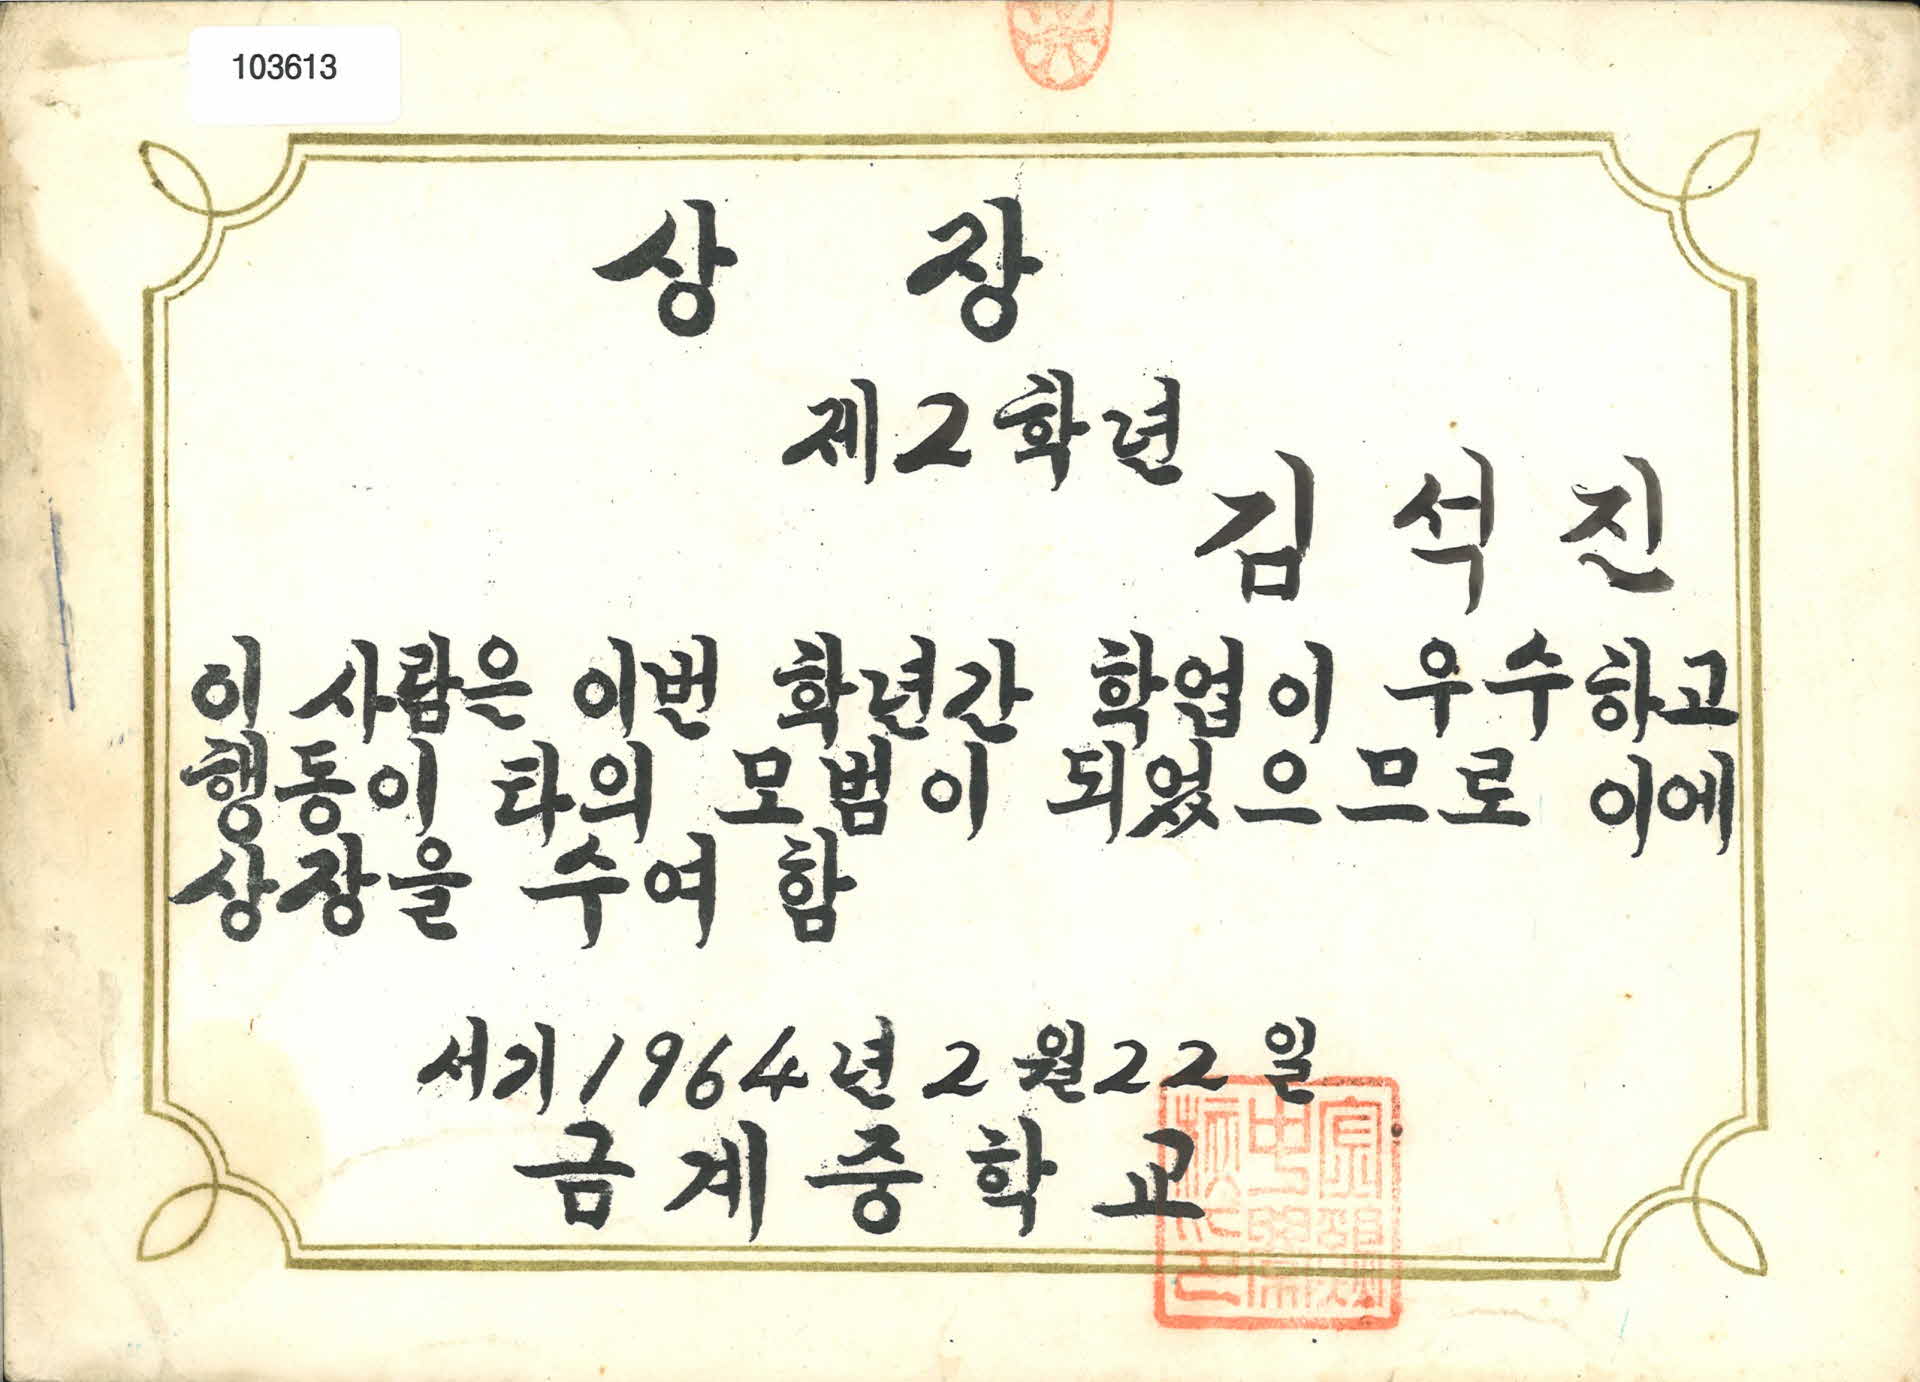 103613
상 장
제2학년
김 석 진
이 사람은 이번 학년간 학업이 우수하고
행동이 타의 모범이 되었으므로 이에
상장을 수여 함
서기 1964년 2월 22일
금계중학교